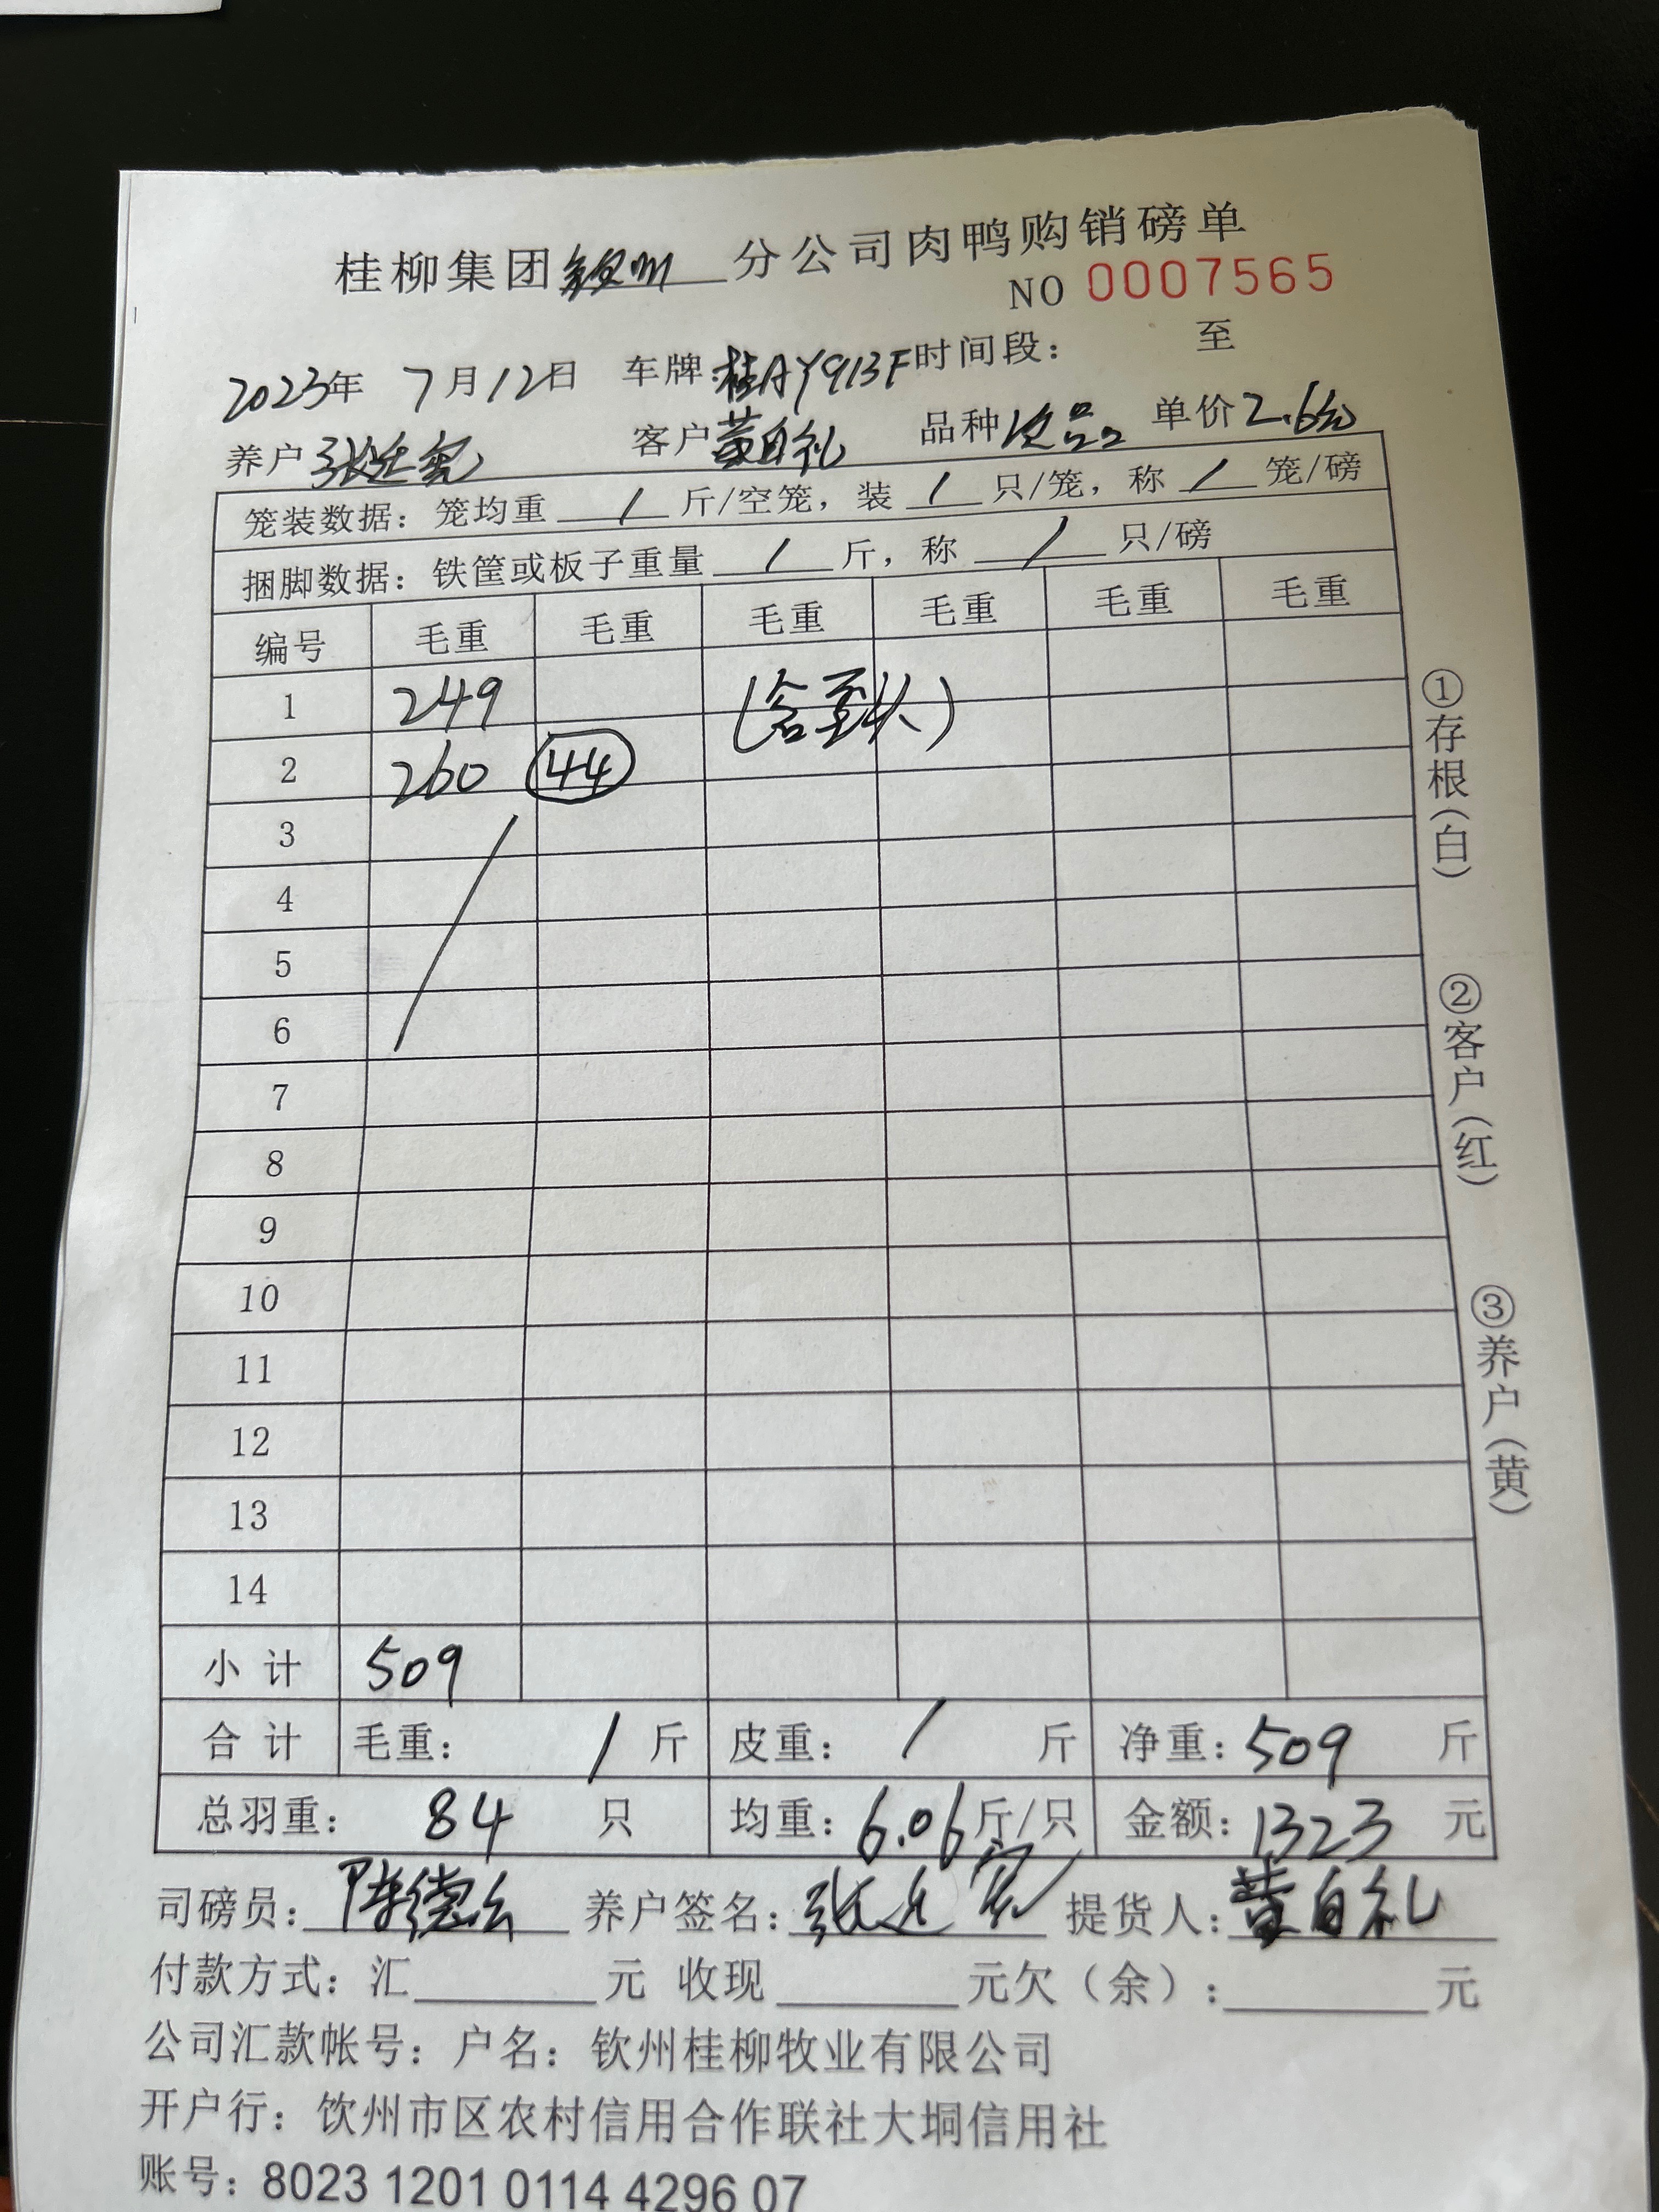 桂柳集团钦州分公司肉鸭购销磅单
NO 0007565
2023年 7月12日 车牌:桂AY913F 时间段: 至
养户 张廷 客户 黄自礼 品种 次品 单价 2.6元
笼装数据: 笼均重 / 斤/空笼, 装 / 只/笼, 称 / 笼/磅
捆脚数据: 铁筐或板子重量 / 斤, 称 / 只/磅
编号 毛重 毛重 毛重 毛重 毛重 毛重
1 249 (含歪头)
2 260 44
3
4
5
6
7
8
9
10
11
12
13
14
小 计 509
合 计 毛重: / 斤 皮重: / 斤 净重: 509 斤
总羽重: 84 只 均重: 6.06斤/只 金额: 1323 元
司磅员: 陈德 养户签名: 张廷 提货人: 黄自礼
付款方式: 汇 元 收现 元欠(余): 元
公司汇款帐号: 户名: 钦州桂柳牧业有限公司
开户行: 饮州市区农村信用合作联社大垌信用社
账号: 8023 1201 0114 4296 07
①存根(白)
②客户(红)
③养户(黄)